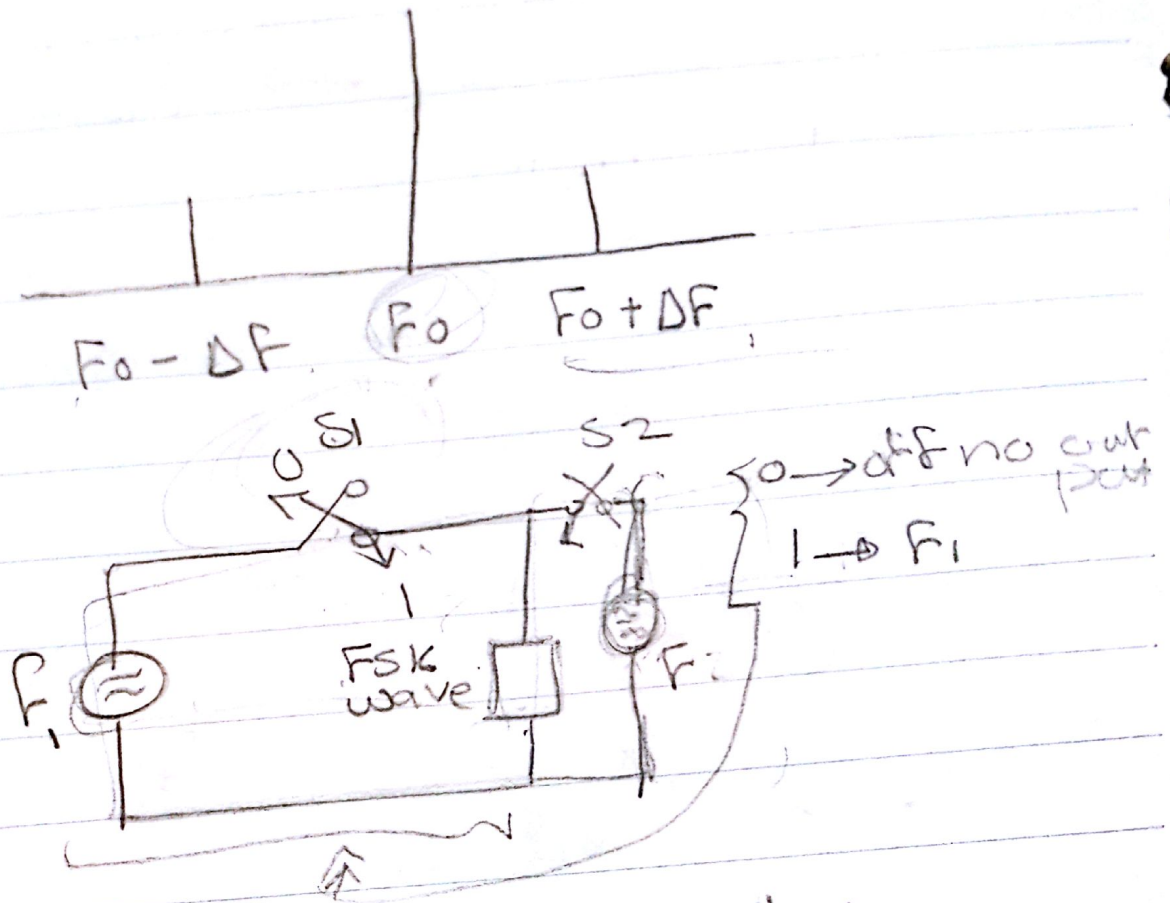 Fo - ΔF Fo Fo + ΔF
0 S1 S2
0 → no out
put
1 → F1
1
FSK
wave
F1 F